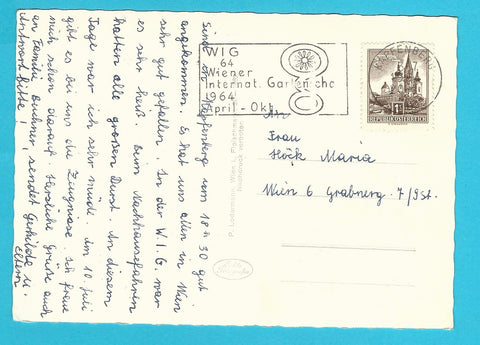 Sind in Kapfenberg um 18h 30 gut
angekommen. Es hat uns allen in Wien
sehr gut gefallen. In der W.I.G. war
es sehr heiß. Beim Nachhausefahren
hatten alle großen Durst. An diesem
Tage war ich sehr müde. Am 10. Juli
gibt es bei uns die Zeugnisse. Ich freue
mich schon darauf. Herzliche Grüße auch
an Familie sendet Gerhilde u.
Eltern
Antwort Bitte!
WIG
64
Wiener
Internat. Gartenscha
1964
April - Okt.
KAPFENBERG
1S
REPUBLIK ÖSTERREICH
P. Ledermann, Wien I,
Nachdruck verboten
An
Frau
Höck Maria
Wien 6 Grabnerg. 7/9St.